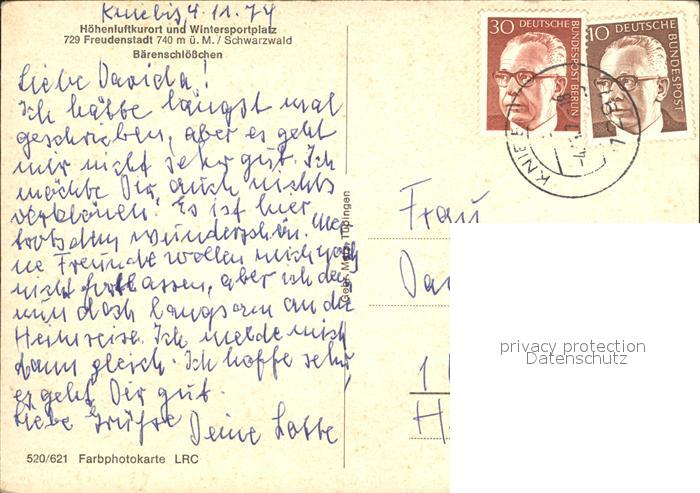 Kniebis, 4.11.74
Höhenluftkurort und Wintersportplatz
729 Freudenstadt 740 m ü. M. / Schwarzwald
Bärenschlößchen
Liebe Davida!
Ich hätte längst mal
geschrieben, aber es geht
mir nicht sehr gut. Ich
möchte Dir auch nichts
Es ist hier
trotzdem wunderschön. Mei-
ne Freunde wollen mich noch
nicht fortlassen, aber ich denke
nun doch langsam an die
Heimreise. Ich melde mich
dann gleich. Ich hoffe sehr,
es geht Dir gut.
Liebe Grüße Deine Lotte
520/621 Farbphotokarte LRC
Gebr. Metz, Tübingen
30 DEUTSCHE BUNDESPOST BERLIN
10 DEUTSCHE BUNDESPOST
KNIEBIS
Frau
Da
1
H
privacy protection
Datenschutz